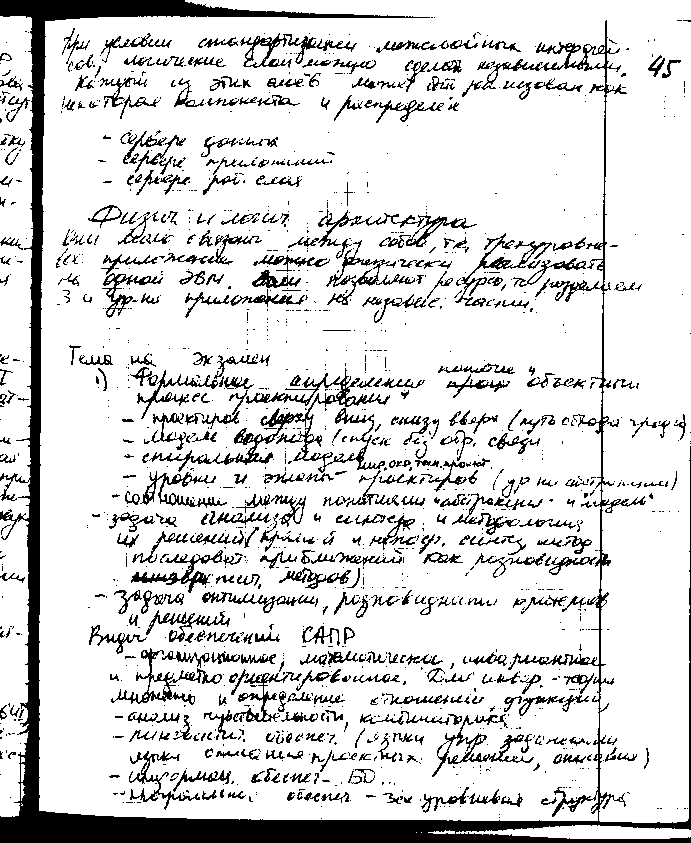 При условии стандартизации межслойных интерфей-
сов, логические слои можно сделать независимыми. 45
Каждый из этих слоёв может быть реализован как
некоторая компонента и распределен
- сервере данных
- сервере приложений
- сервере
Физич и логич архитектура
связаны между собой, т.е. трехуровне-
вые приложения можно физически реализовать
на одной ЭВМ. Если позволяют ресурсы, то разделяем
3 и ур-ня приложения на независ. части.
Тема на экзамен
1) Формальное определение понятие "объектный
процесс проектирования"
- проектиров сверху вниз, снизу вверх (
- модель водопада (спуск без обр. связи
- спиральная модель
- уровни и этапы проектиров (ур-ни абстракции)
- соотношение между понятиями "абстракция" и "модель"
- задача анализа и синтеза и методология
их решений ( и синтез, метод
последоват приближений как разновидность
методов)
- задача оптимизации, разновидности критериев
и решений
Виды обеспечений САПР
- организационное, математическое, инвариантное
и предметно ориентированное. Для инвар. - теория
множеств и определение отношений, функций,
- анализ чувствительности, комбинаторика
- лингвистич обеспеч. (языки упр. заданиями
языки описания проектных решений, описания)
- информац. обеспеч - БД...
- обеспеч - уровневая структура